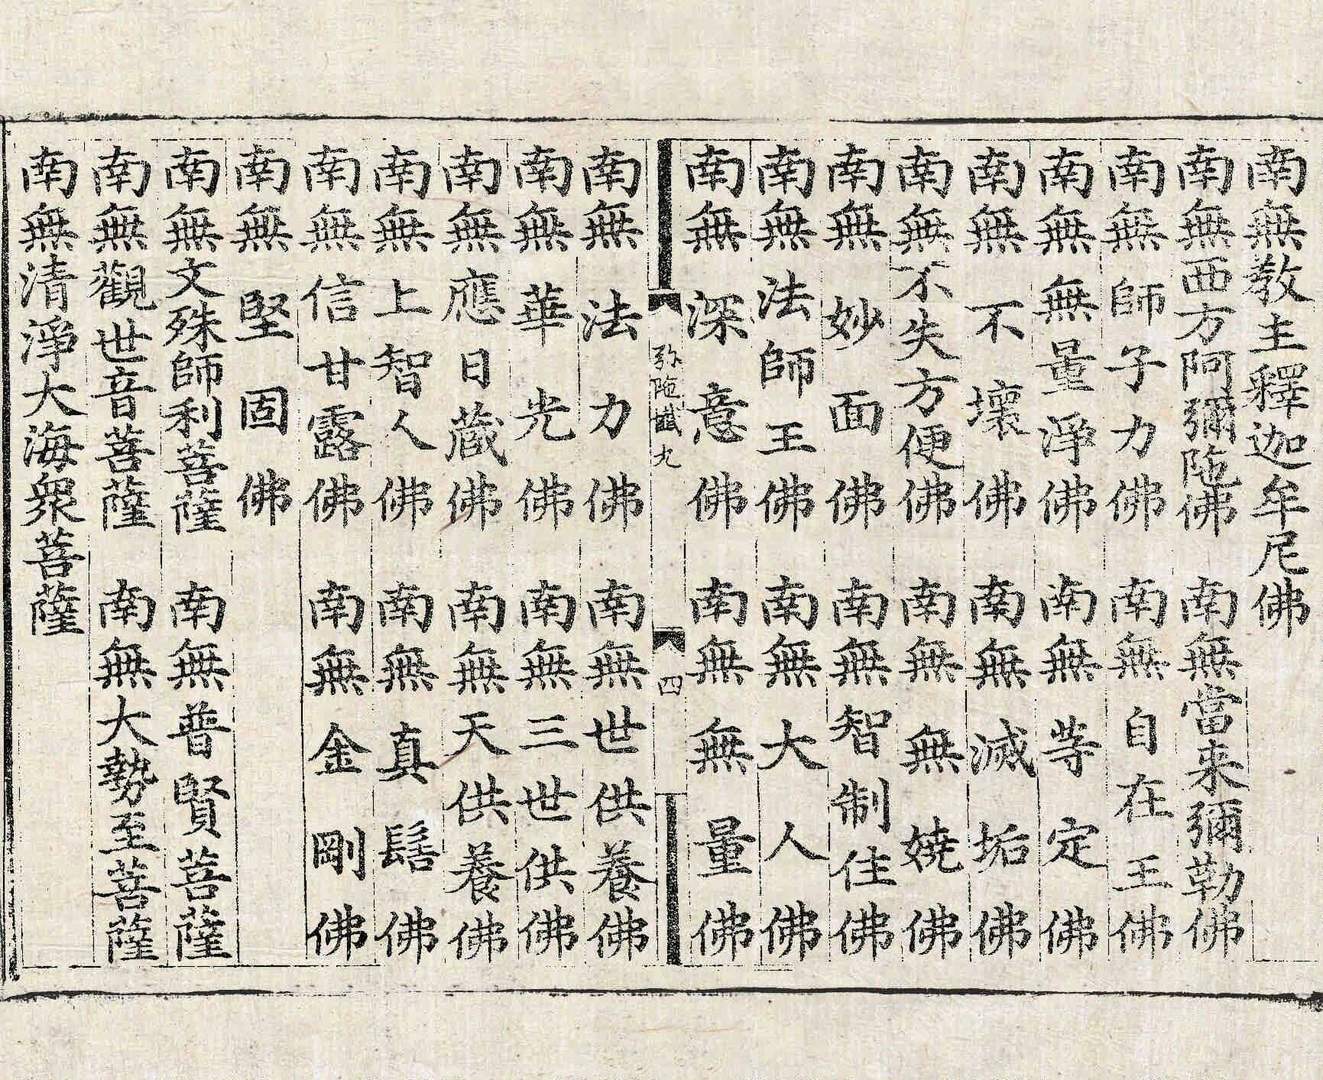 南無教主釋迦牟尼佛
南無西方阿彌陁佛 南無當来彌勒佛
南無師子力佛 南無自在王佛
南無無量淨佛 南無等定佛
南無不壞佛 南無滅垢佛
南無不失方便佛 南無無嬈佛
南無妙面佛 南無智制住佛
南無法師王佛 南無大人佛
南無深意佛 南無無量佛
弥陁懴九 四
南無法力佛 南無世供養佛
南無華光佛 南無三世供佛
南無應日藏佛 南無天供養佛
南無上智人佛 南無真髻佛
南無信甘露佛 南無金剛佛
南無堅固佛
南無文殊師利菩薩 南無普賢菩薩
南無觀世音菩薩 南無大勢至菩薩
南無清淨大海衆菩薩